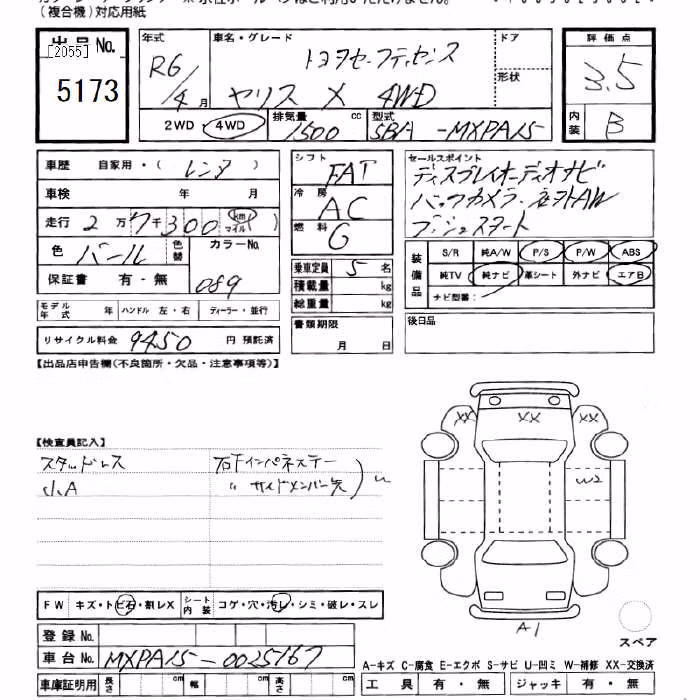 (複合機)対応用紙
出品No.
[2055]
5173
年式
R6/4月
車名・グレード
トヨタセーフティセンス
ヤリス X 4WD
ドア
形状
評価点
3.5
内装
B
2WD・4WD
排気量 1500 cc
型式 5BA-MXPA15
車歴 自家用・( レンタ )
車検 年 月
走行 2万7千300 km マイル
色 パール 色替
カラーNo. 089
保証書 有・無
モデル年式 年 ハンドル 左・右 ディーラー・並行
リサイクル料金 9450 円 預託済
シフト FAT
冷房 AC
燃料 G
乗車定員 5 名
積載量 kg
総重量 kg
書類期限
月 日
セールスポイント
ディスプレイオーディオナビ
バックカメラ
プッシュスタート
装備品
S/R 純A/W P/S P/W ABS
純TV 純ナビ 革シート 外ナビ エアB
ナビ型番:
後日品
【出品店申告欄(不良箇所・欠品・注意事項等)】
【検査員記入】
スタッドレス
小A
右Fインパネステー
〃 サイドメンバー先
u
XX
XX
W2
A1
スペア
FW キズ・トビ石・割レX
シート内装 コゲ・穴・汚レ・シミ・破レ・スレ
登録No.
車台No. MXPA15-0025167
車庫証明用 長さ cm 幅 cm 高さ cm
A-キズ C-腐食 E-エクボ S-サビ U-凹ミ W-補修 XX-交換済
工具 有・無 ジャッキ 有・無